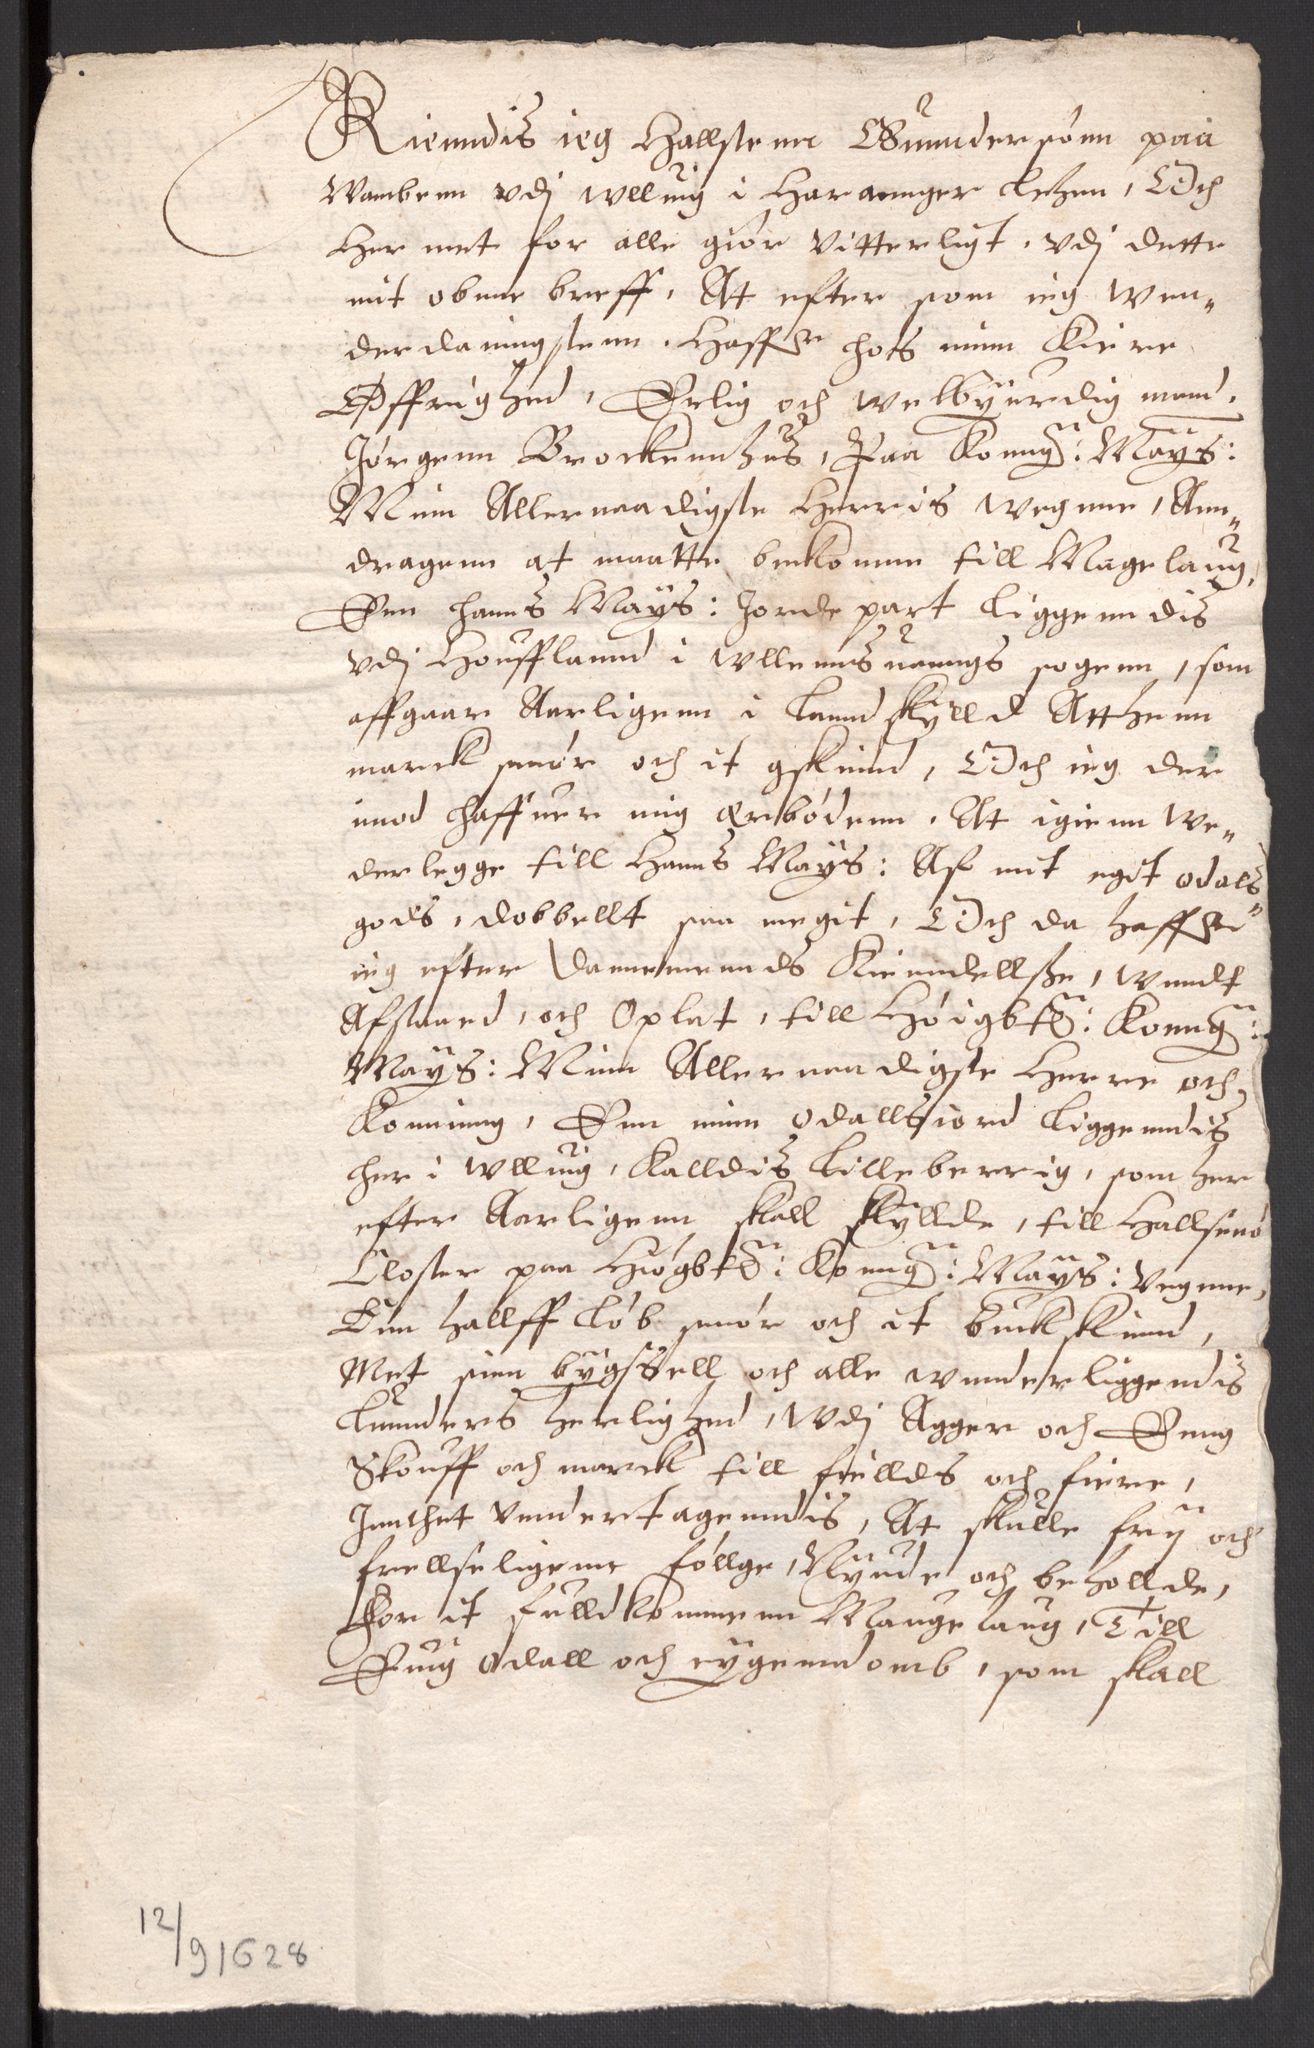 Kiemdis ieg Hallstenn Gunndersönn paa
Wambenn vdj Wlluig i Haraannger Lehen, Och
Her met for alle giör Vitterligt, vdj dette
mit obne breff, At efter som ieg Wen„
derdaningstenn, Haffuer hos minn Kiere
Öffrighed, Erlig och welbyurdig mand,
Jörgenn Brockennhus, Paa Konng: Mays:
Minn Allernaadigste Herris wegnne, Ann„
dragenn at maatte bekomme till Magelaug,
Enn hanns Mays: Jorde part liggenndis
vdj Houfflannd i Wllennsuanngs sogenn, som
affgaar Aarligenn i lanndskylld Atthenn
marck smör och it gskinnd, Och ieg der
imod haffuer mig erbödenn, At igienn we„
derlegge till Hanns Mays: Af mit egit odals„
gods, dobbellt saa megit, Och da haffuer
ieg efter Dannemends Kienndellsse, wundt
Afstaaed, och Oplat, till Höigbte: Konng:
Mays: Minn Allernaadigste Herre och
Konning, Enn minn Odallsiord liggenndis
her i Wlluig, Kalldis Lilleberrig, som her
efter Aarligenn skall skyllde, till Hallsnö
Closter paa Höigbte: Konng: Mays: Vegnne,
Enn hallff Löb smör och it buckskinnd,
Met sinn bygssell och alle wnnderliggendis
lunnders herlighed, Wdj Agger och Enng
Skouff och marck till fiellds och fiere,
Inthet Vnndertagenndis, At skulle frij och
frellseligenn föllge, Nyude och behollde,
For it fulldkommenn Mauge laug, Till
Euig Odall och eygenndomb, som skall
12/9 1628